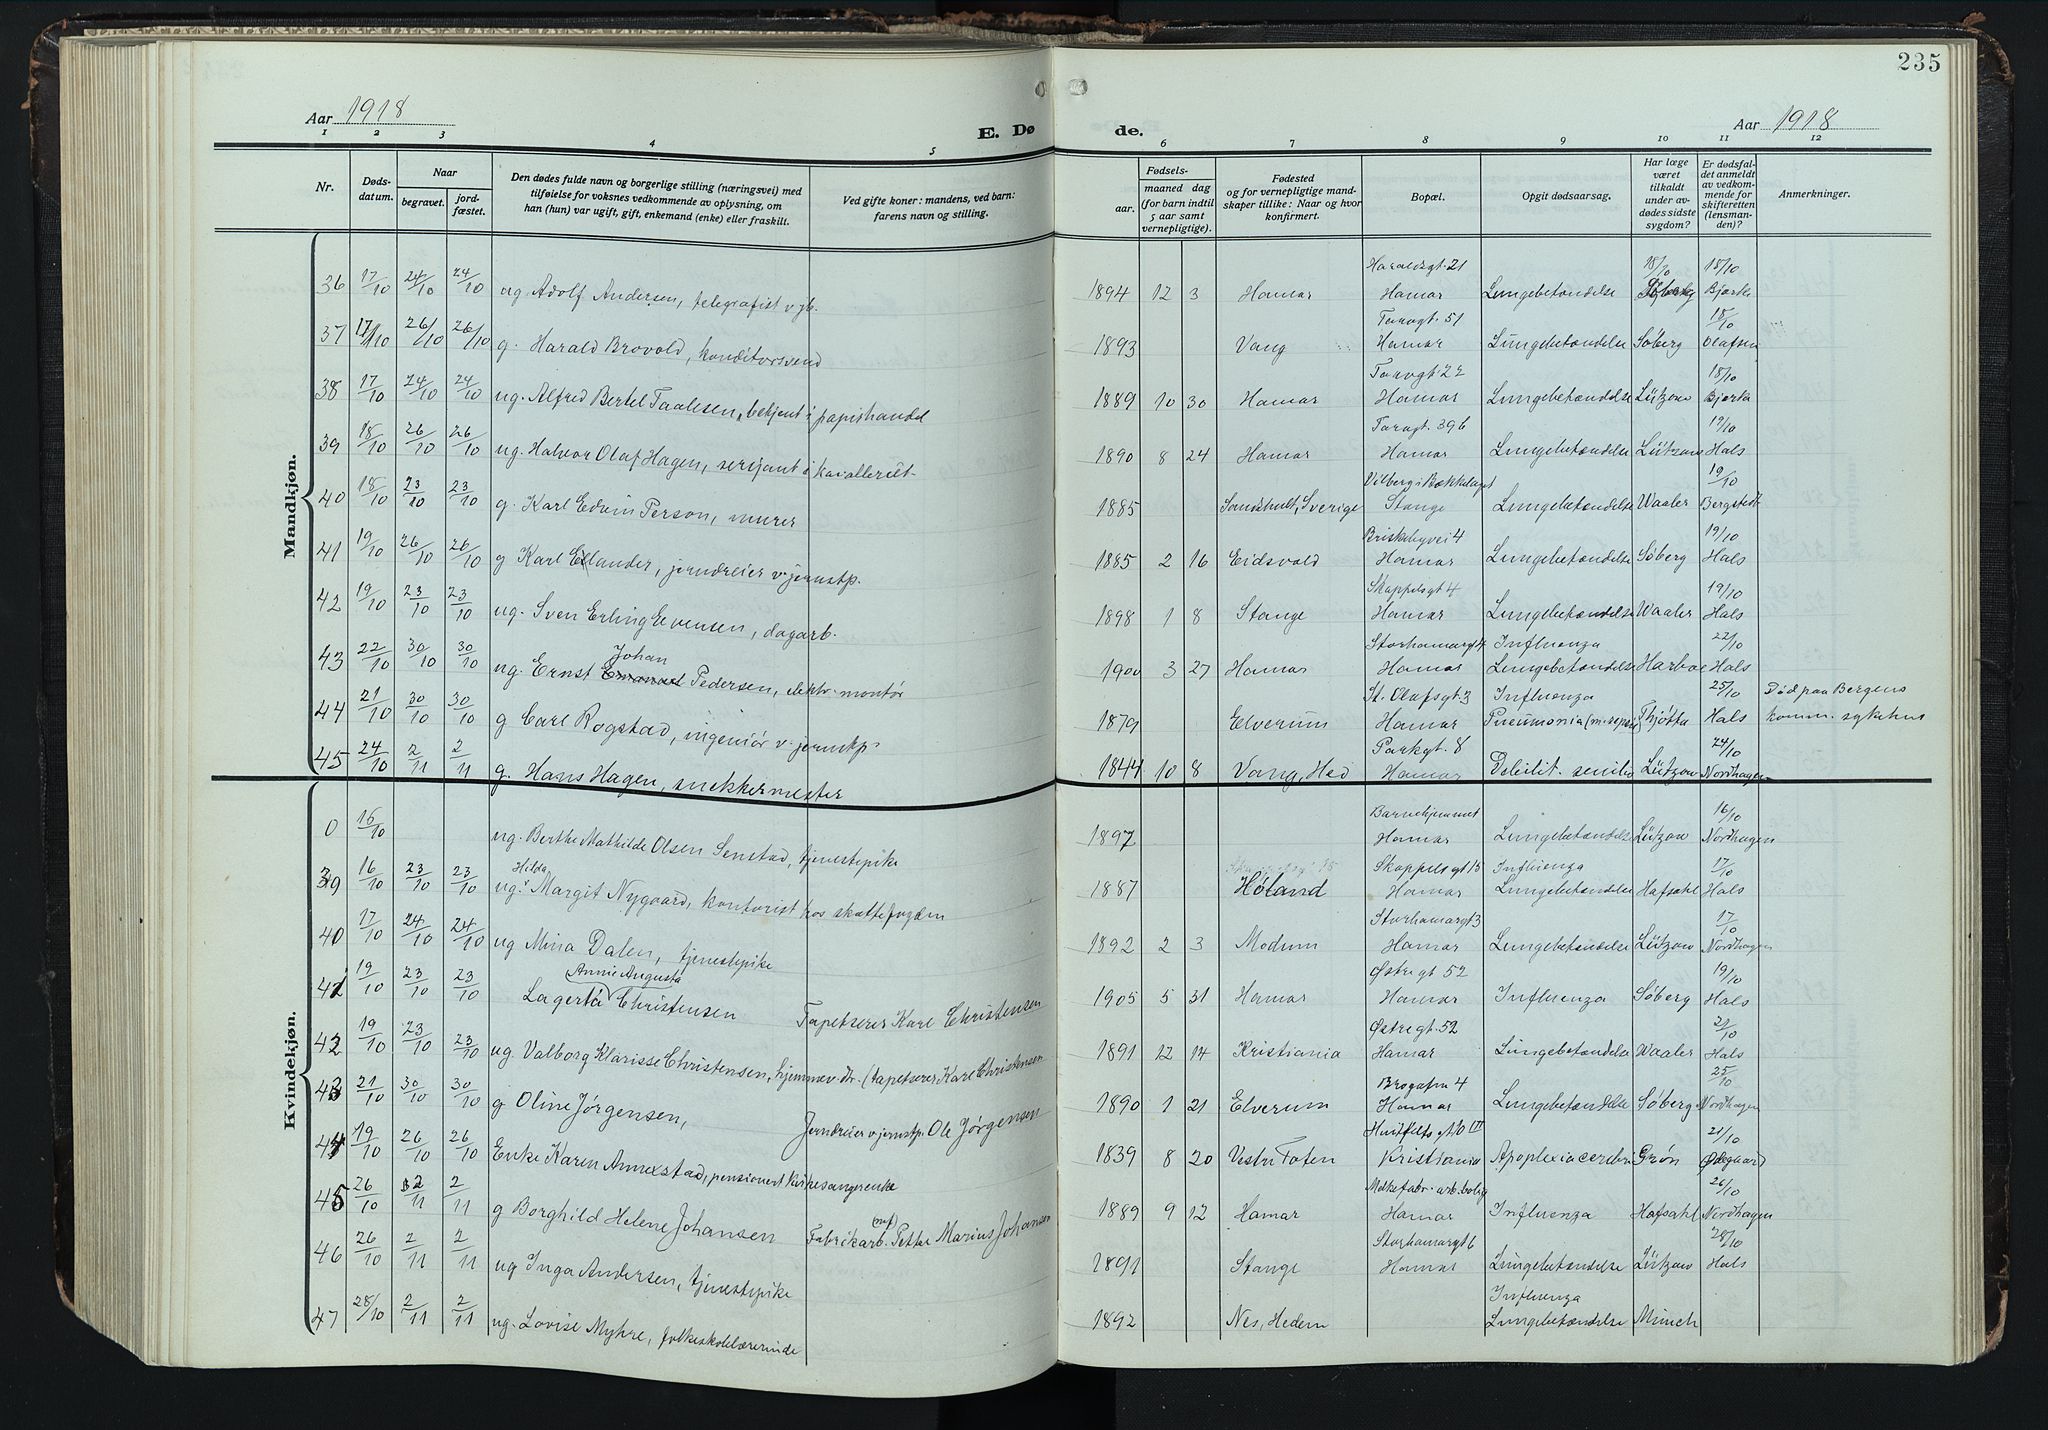 235
Aar 1918
E. Dø
de.
Aar 1918
1 2 3 4 5 6 7 8 9 10 11 12
Nr.
Døds-
datum.
Naar
begravet.
jord-
fæstet.
Den dødes fulde navn og borgerlige stilling (næringsvei) med
tilføielse for voksnes vedkommende av oplysning, om
han (hun) var ugift, gift, enkemand (enke) eller fraskilt.
Ved gifte koner: mandens, ved barn:
farens navn og stilling.
Fødsels-
aar.
maaned dag
(for barn indtil
5 aar samt
vernepligtige).
Fødested
og for vernepligtige mand-
skaper tillike: Naar og hvor
konfirmert.
Bopæl.
Opgit dødsaarsag.
Har læge
været
tilkaldt
under av-
dødes sidste
sygdom?
Er dødsfal-
det anmeldt
av vedkom-
mende for
skifteretten
(lensman-
den)?
Anmerkninger.
Mandkjøn.
36 17/10 24/10 24/10 ug. Adolf Andersen, telegrafist v jb. 1894 12 3 Hamar Haraldsgt. 21 Hamar Lungebetændelse 18/10 Søberg 18/10 Bjørke
37 17/10 26/10 26/10 g. Harald Brovold, konditorsvend 1893 Vang Torvgt. 51 Hamar Lungebetændelse Søberg 18/10 Olafsen
38 17/10 24/10 24/10 ug. Alfred Bertel Taalesen, bekjent i papirhandel 1889 10 30 Hamar Torvgt. 22 Hamar Lungebetændelse Lützow 18/10 Bjørke
39 18/10 26/10 26/10 ug. Halvor Olaf Hagen, serjant i kavalleriet 1890 8 24 Hamar Torvgt. 39 b Hamar Lungebetændelse Lützow 19/10 Hals
40 18/10 23/10 23/10 g. Karl Edvin Person, murer 1885 Sandshult, Sverige Vilberg i Bækkelaget Stange Lungebetændelse Waaler 19/10 Bergstedt
41 19/10 26/10 26/10 g Karl Ellander, jerndreier v. jernstp. 1885 2 16 Eidsvold Briskebyvei 4 Hamar Lungebetændelse Søberg 19/10 Hals
42 19/10 23/10 23/10 ug. Sven Erling Evensen, dagarb. 1898 1 8 Stange Skappelsgt 4 Hamar Lungebetændelse Waaler 19/10 Hals
43 22/10 30/10 30/10 ug. Ernst Johan Pedersen, elektr. montør 1900 3 27 Hamar Storhamargt Hamar Influenza Lungebetændelse Harboe 22/10 Hals
44 21/10 30/10 30/10 g Carl Rogstad, ingeniør v. jernstp. 1879 Elverum St. Olafsgt. 3 Hamar Influenza Pneumonia Thjøtta 25/10 Hals Død paa Bergens komm. sykehus
45 24/10 2/11 2/11 g. Hans Hagen, snekkermester 1844 10 8 Vang, Hed Parkgt. 8 Hamar Debilit. senilis Lützow 24/10 Nordhagen
Kvindekjøn.
0 16/10 ug. Berthe Mathilde Olsen Senstad, tjenestepike 1897 Barnehjemmet Hamar Lungebetændelse Lützow 16/10 Nordhagen
39 16/10 23/10 23/10 ug. Hilda Margit Nygaard, kontorist hos skattefogden 1887 Høland Skappelsgt 15 Hamar Influenza Lungebetændelse Hafsahl 17/10 Hals
40 17/10 24/10 24/10 ug Mina Dalen, tjenestepike 1892 2 3 Modum Storhamargt 3 Hamar Lungebetændelse Lützow 17/10 Nordhagen
41 19/10 23/10 23/10 Lagerta Annie Augusta Christensen Tapetserer Karl Christensen 1905 5 31 Hamar Østregt 52 Hamar Influenza Søberg 19/10 Hals
42 19/10 23/10 23/10 ug. Valborg Klarisse Christensen, hjemmev. dtr. (tapetserer Karl Christensen 1891 12 14 Kristiania Østregt. 52 Hamar Lungebetændelse Waaler 21/10 Hals
43 21/10 30/10 30/10 g Oline Jørgensen, Jerndreier v jernstp. Ole Jørgensen 1890 1 21 Elverum 4 Hamar Lungebetændelse Søberg 25/10 Nordhagen
44 19/10 26/10 26/10 Enke Karen Annexstad, pensionert kirkesangerenke 1839 8 20 Vestre Toten Huitfelts gt 10 III Kristiania Apoplexia cerebri Grøn 21/10 Ødegaard
45 26/10 2/11 2/11 g Borghild Helene Johansen Fabrikarb. Petter Marius Johansen 1889 9 12 Hamar Melkefabr. arb. bolig Hamar Influenza Hafsahl 26/10 Nordhagen
46 26/10 2/11 2/11 ug Inga Andersen, tjenestepike 1891 Stange Storhamargt 6 Hamar Lungebetændelse Lützow 28/10 Hals
47 28/10 2/11 2/11 ug. Lovise Myhre, folkeskolelærerinde 1892 Nes, Hedem Influenza Lungebetændelse Münch